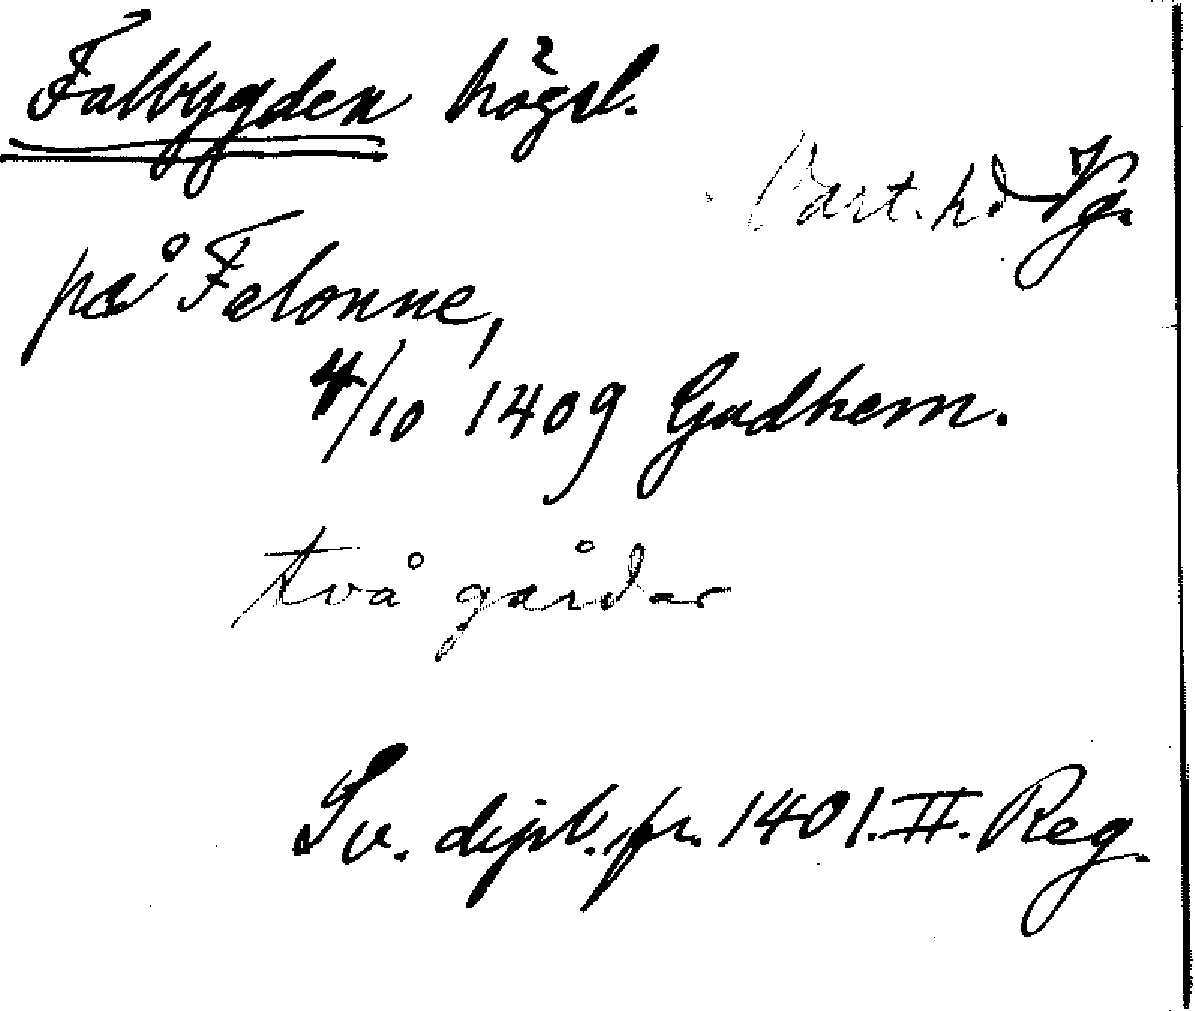 Falbygden högsl.
Vart. hd Vg.
på Felonne,
4/10 1409 Gudhem.
två gårdar
Sv. dipl. fr. 1401. II. Reg.